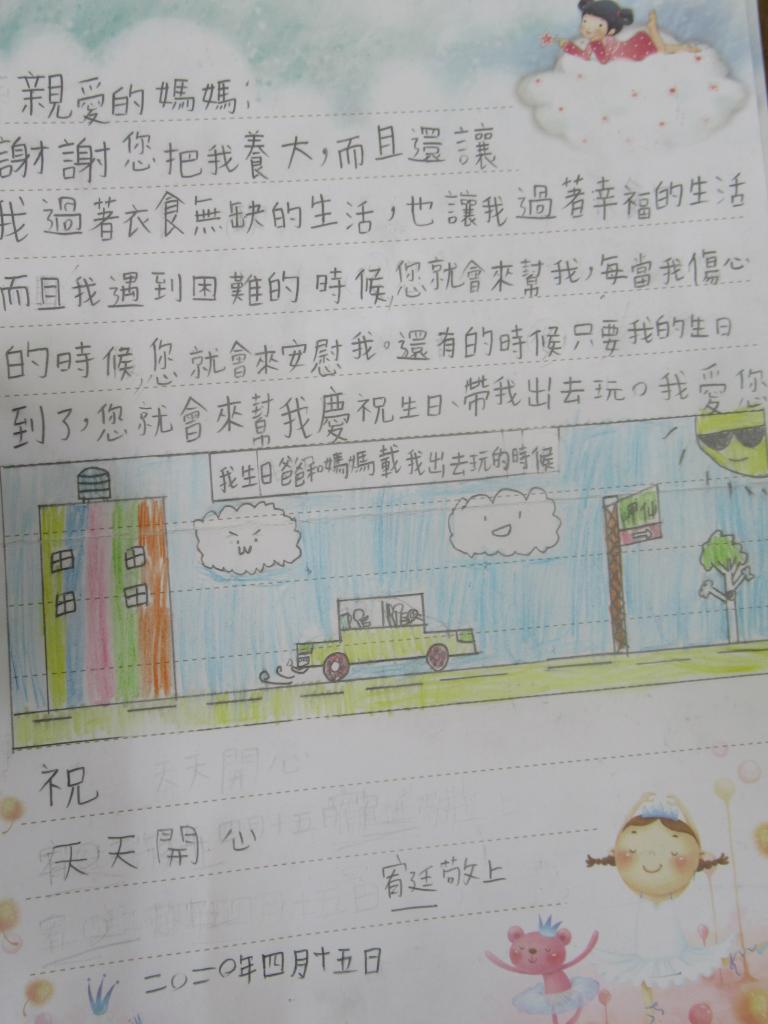 親愛的媽媽：
謝謝您把我養大，而且還讓
我過著衣食無缺的生活，也讓我過著幸福的生活
而且我遇到困難的時候，您就會來幫我，每當我傷心
的時候，您就會來安慰我。還有的時候只要我的生日
到了，您就會來幫我慶祝生日、帶我出去玩。我愛您
我生日爸爸和媽媽載我出去玩的時候
祝
天天開心
宥廷敬上
二〇二〇年四月十五日